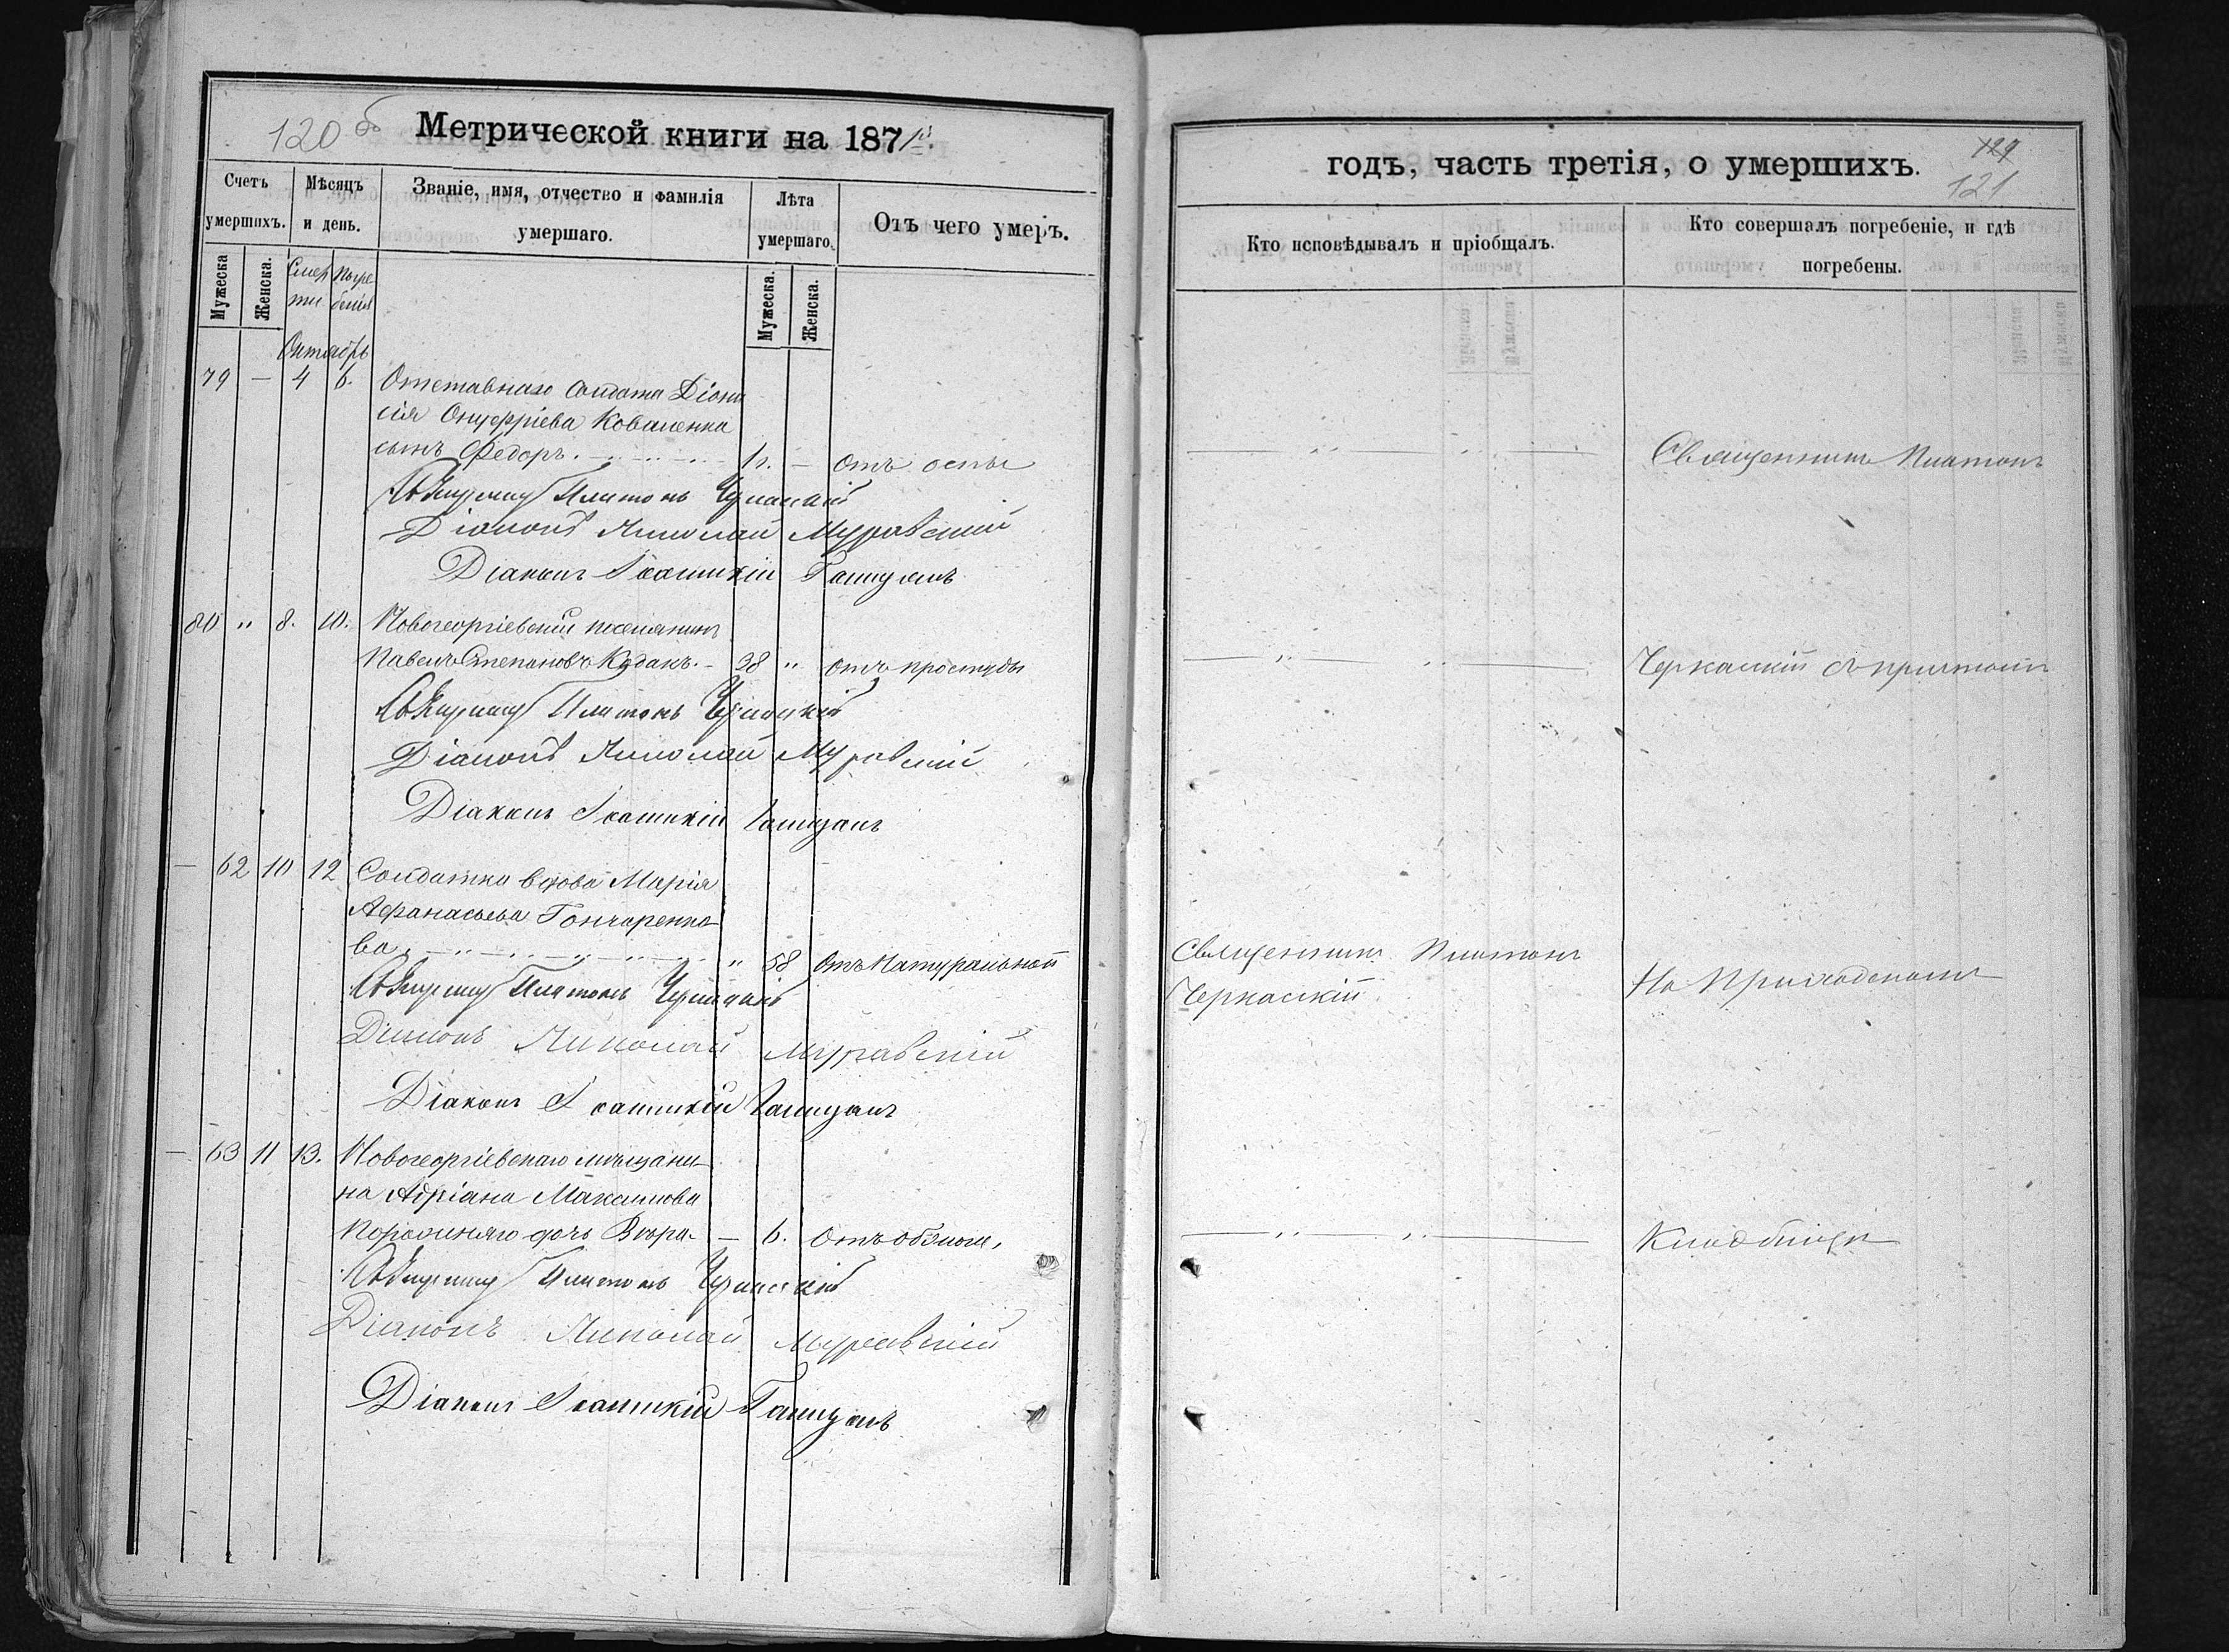 120 об
Метрической книги на 1871й.
Счетъ умершихъ.
Мѣсяцъ и день.
Званіе, имя, отчество и фамилія умершаго.
Лѣта умершаго.
Отъ чего умеръ.
Мужеска
Женска.
Смерти
Погребенія
Мужеска.
Женска.
Октябрь
79 — 4 6. Отставнаго солдата Діони
сія Онуфріева Коваленка
сынъ Федоръ. 1 г. — отъ оспы
Священникъ Платонъ Черкаскій
Діаконъ Николай Муравскій
Діаконъ Іоанникій
80 " 8. 10. Новогеоргіевскій поселянинъ
Павелъ Степановъ Кудакъ. 38 " отъ простуды
Священникъ Платонъ Черкаскій
Діаконъ Николай Муравскій
Діаконъ Іоанникій
— 62 10 12 Солдатка вдова Марія
Афанасьева Гончаренко-
ва " 58 Отъ Натуральной
Священникъ Платонъ Черкаскій
Діаконъ Николай Муравскій
Діаконъ Іоанникій
— 63 11 13. Новогеоргіевскаго мѣщани-
на Адріана Максимова
дочь Вѣра — 6. Отъ
Священникъ Платонъ Черкаскій
Діаконъ Николай Муравскій
Діаконъ Іоанникій
годъ, часть третія, о умершихъ.
129
121
Кто исповѣдывалъ и пріобщалъ.
Кто совершалъ погребеніе, и гдѣ
погребены.
Священникъ Платонъ
Черкаскій съ причтомъ
Священникъ Платонъ
Черкаскій
На Приходскомъ
Кладбищѣ